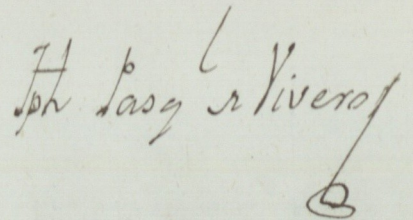 Jph Pasql r Vivero